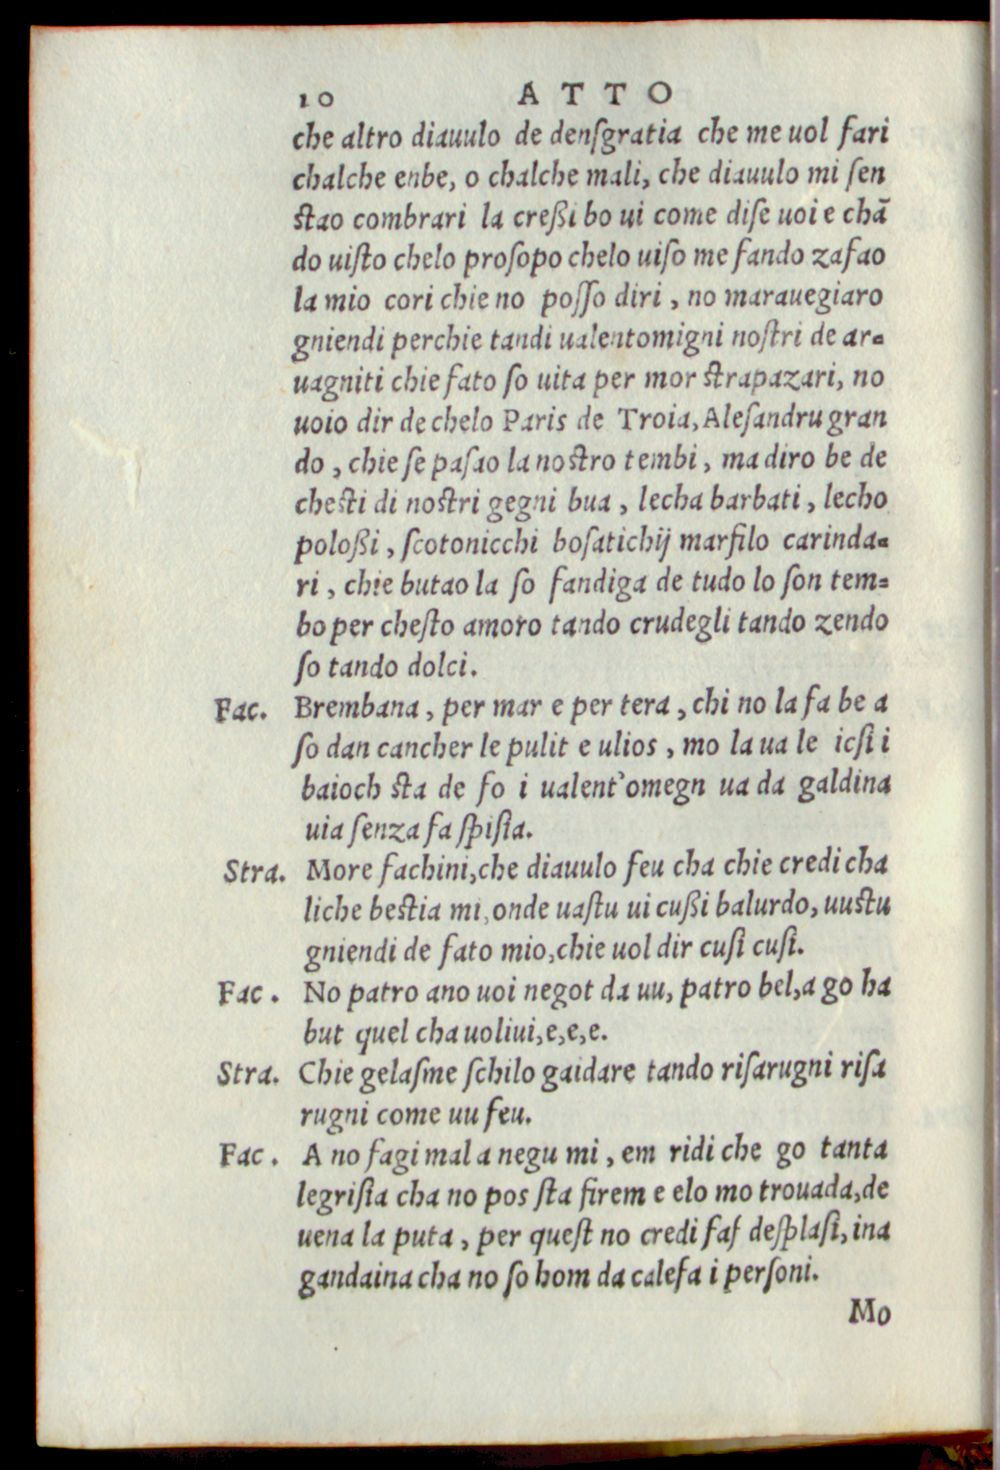 10 ATTO
che altro diauulo de denſgratia che me uol fari
chalche enbe, o chalche mali, che diauulo mi ſen
ſtao combrari la creßi bo ui come diſe uoi e chā
do uiſto chelo proſopo chelo uiſo me fando zafao
la mio cori chie no poſſo diri, no marauegiaro
gniendi perchie tandi ualentomigni noſtri de ar=
uagniti chie fato ſo uita per mor ſtrapazari, no
uoio dir de chelo Paris de Troia, Aleſandru gran
do, chie ſe paſao la noſtro tembi, ma diro be de
cheſti di noſtri gegni bua, lecha barbati, lecho
poloßi, ſcotonicchi boſatichij marfilo carinda=
ri, chie butao la ſo fandiga de tudo lo ſon tem=
bo per cheſto amoro tando crudegli tando zendo
ſo tando dolci.
Fac. Brembana, per mar e per tera, chi no la fa be a
ſo dan cancher le pulit e ulios, mo la ua le icſi i
baioch ſta de fo i ualent'omegn ua da galdina
uia ſenza fa ſpiſia.
Stra. More fachini, che diauulo feu cha chie credi cha
liche beſtia mi, onde uaſtu ui cußi balurdo, uuſtu
gniendi de fato mio, chie uol dir cuſi cuſi.
Fac. No patro ano uoi negot da uu, patro bel, a go ha
but quel cha uoliui, e, e, e.
Stra. Chie gelaſme ſchilo gaidare tando riſarugni riſa
rugni come uu feu.
Fac. A no fagi mal a negu mi, em ridi che go tanta
legriſia cha no pos ſta firem e elo mo trouada, de
uena la puta, per queſt no credi faſ deſplaſi, ina
gandaina cha no ſo hom da calefa i perſoni.
Mo